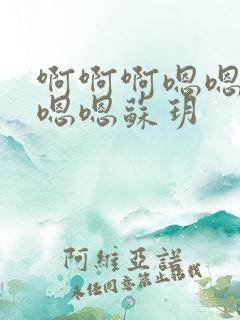 啊啊啊嗯嗯
嗯嗯蘇玥
阿維亞諾
未任同意禁止轉載